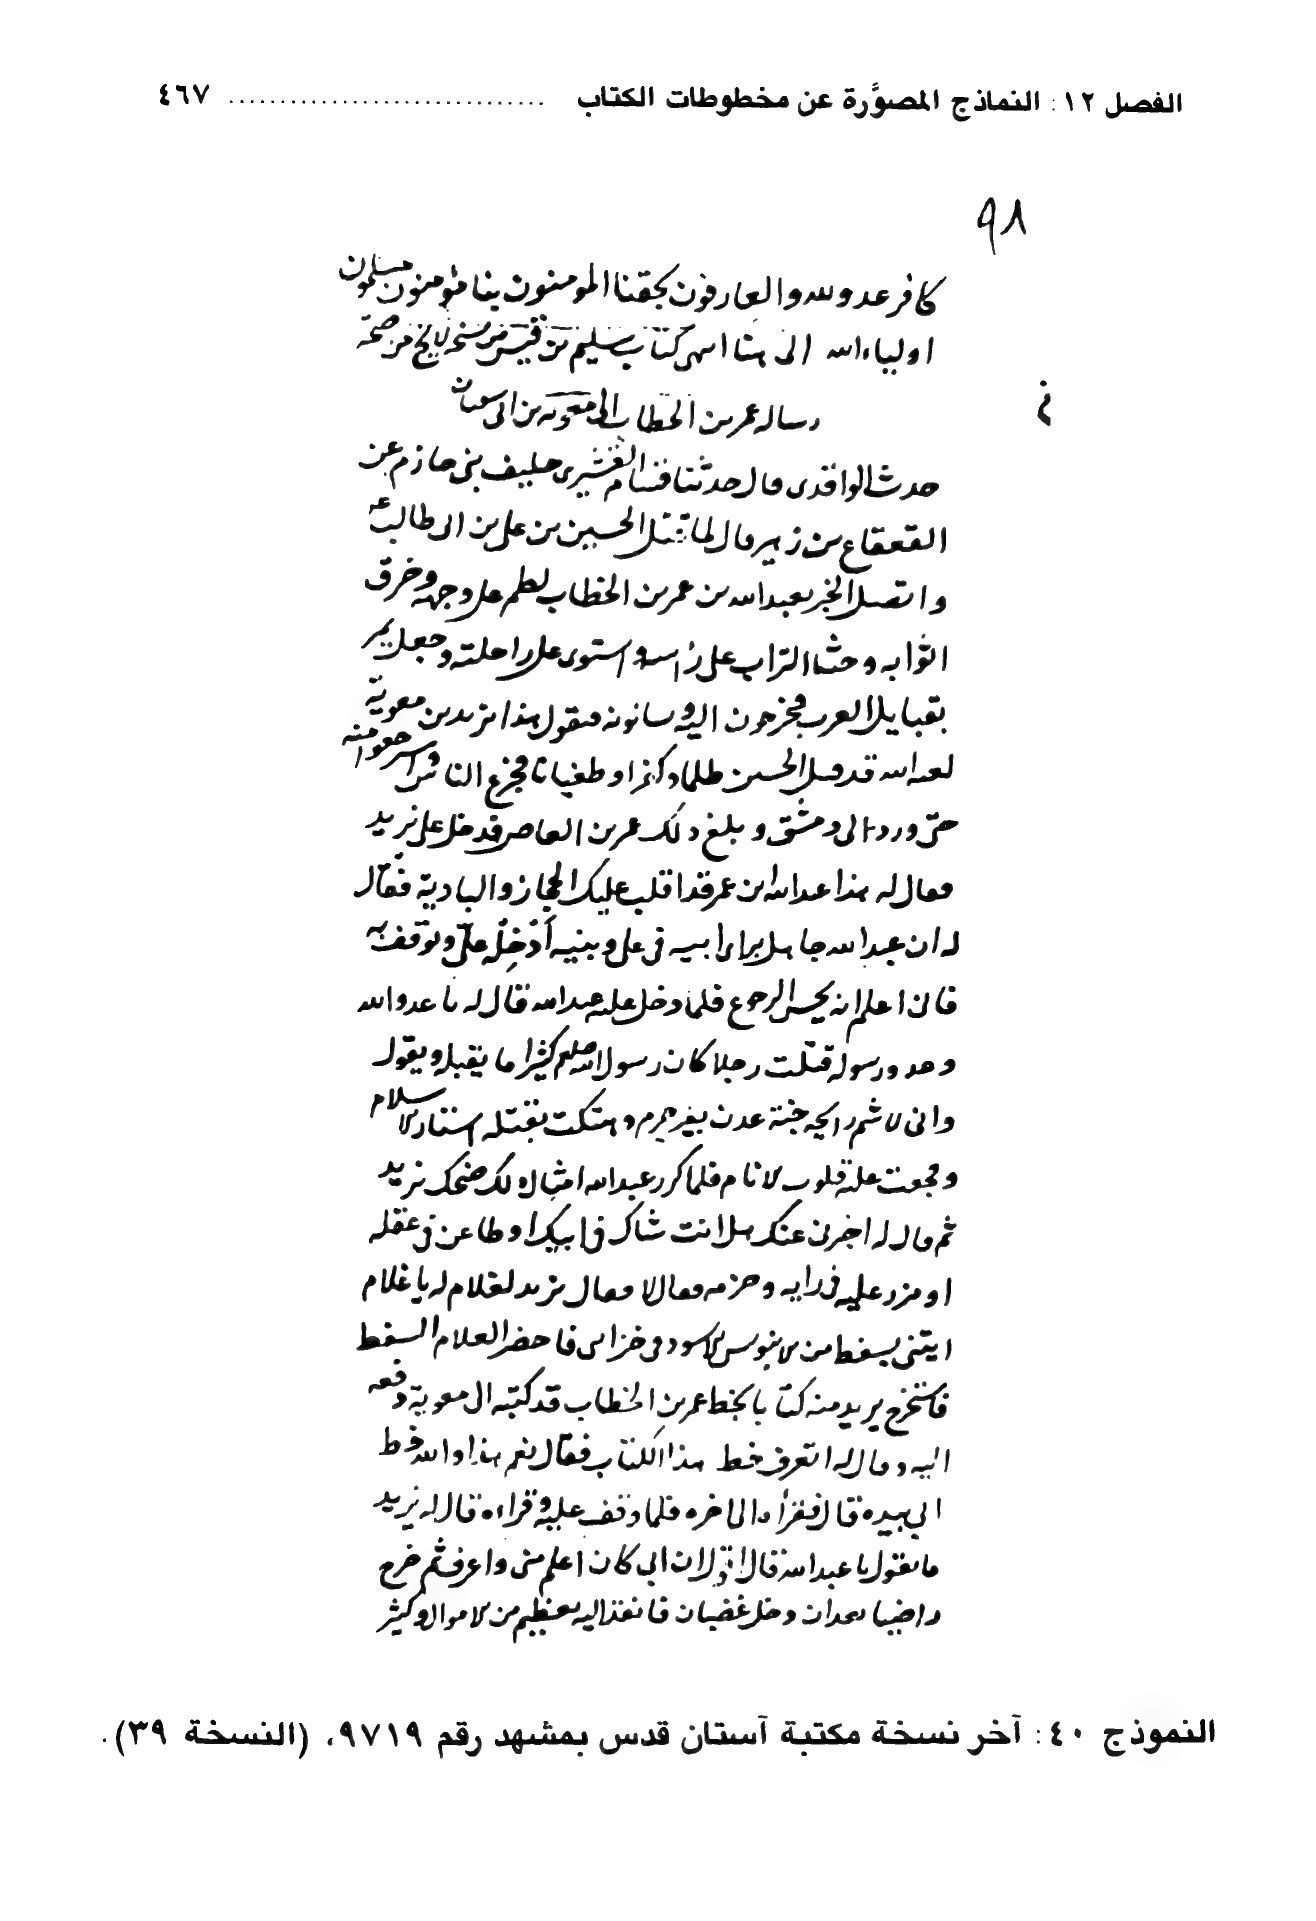 الفصل ١٢: النماذج المصوَّرة عن مخطوطات الكتاب ............................... ٤٦٧
٩٨
كافر عدو لله والعارفون بحقنا المؤمنون بنا مؤمنون مسلمون
اولياء الله الى هنا انتهى كتاب سليم بن قيس من نسخة لا يخ من صحة
رساله عمر بن الخطاب الى معوية بن ابى سفيان
حدثنا الواقدى قال حدثنا القشيرى حليف بنى حازم عن
القعقاع بن زهير قال لما قتل الحسين بن على بن ابى طالب ع
واتصل الخبر بعبد الله بن عمر بن الخطاب لطم على وجهه وخرق
اثوابه وحثا التراب على راسه واستوى على راحلته وجعل يمر
بقبايل العرب فيخرجون اليه ويسالونه فيقول هذا يزيد بن معوية
لعنه الله قد قتل الحسين ظلما وكفرا وطغيانا فجزع الناس واسترجعوا منه
حتى ورد الى دمشق وبلغ ذلك عمر بن العاص فدخل على يزيد
فقال له هذا عبد الله بن عمر قد اقلب عليك الحجاز والبادية فقال
له ان عبد الله جاهل برأى ابيه فى على وبنيه أدخله علىّ وتوقف به
فانى اعلم انه يحسن الرجوع فلما دخل عليه عبد الله قال له يا عدو الله
وعدو رسوله قتلت رجلا كان رسول الله صلعم كثيرا ما يقبله ويقول
وانى لاشم رايحة جنة عدن بغير جرم وهتكت بقتله استار الاسلام
وفجعت عليه قلوب الانام فلما كرر عبد الله امثال ذلك ضحك يزيد
ثم قال له اخبرنى عنك هل انت شاك فى ابيك او طاعن فى عقله
او مزر عليه فى رايه وحزمه فقال لا فقال يزيد لغلام له يا غلام
ايتنى بسفط من الابنوس الاسود فى خزانتى فاحضر الغلام السفط
فاستخرج يزيد منه كتابا بخط عمر بن الخطاب قد كتبه الى معوية دفعه
اليه وقال له اتعرف خط هذا الكتاب فقال نعم هذا والله خط
ابى بيده قال فقرأه الى اخره فلما وقف عليه وقراءه قال له يزيد
ما تقول يا عبد الله قال لان ابى كان اعلم منى واعرف ثم خرج
راضيا بعد ان دخل غضبان فانفذ اليه بعظيم من الاموال وكثير
النموذج ٤٠: آخر نسخة مكتبة آستان قدس بمشهد رقم ٩٧١٩، (النسخة ٣٩).